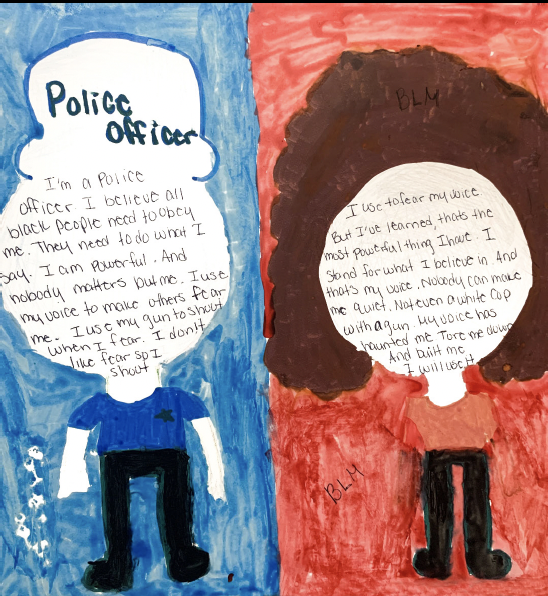 Police
Officer
I'm a Police
officer. I believe all
black people need to obey
me. They need to do what I
say. I am Powerful. And
nobody matters but me. I use
my voice to make others fear
me. I use my gun to shout
when I fear. I don't
like fear so I
shout
BLM
I use to fear my voice
But I've learned, thats the
most powerful thing I have. I
Stand for what I believe in And
thats my voice. Nobody can make
me quiet. Not even a white Cop
with a gun. My voice has
haunted me. Tore me down
And built me
I will use it
BLM